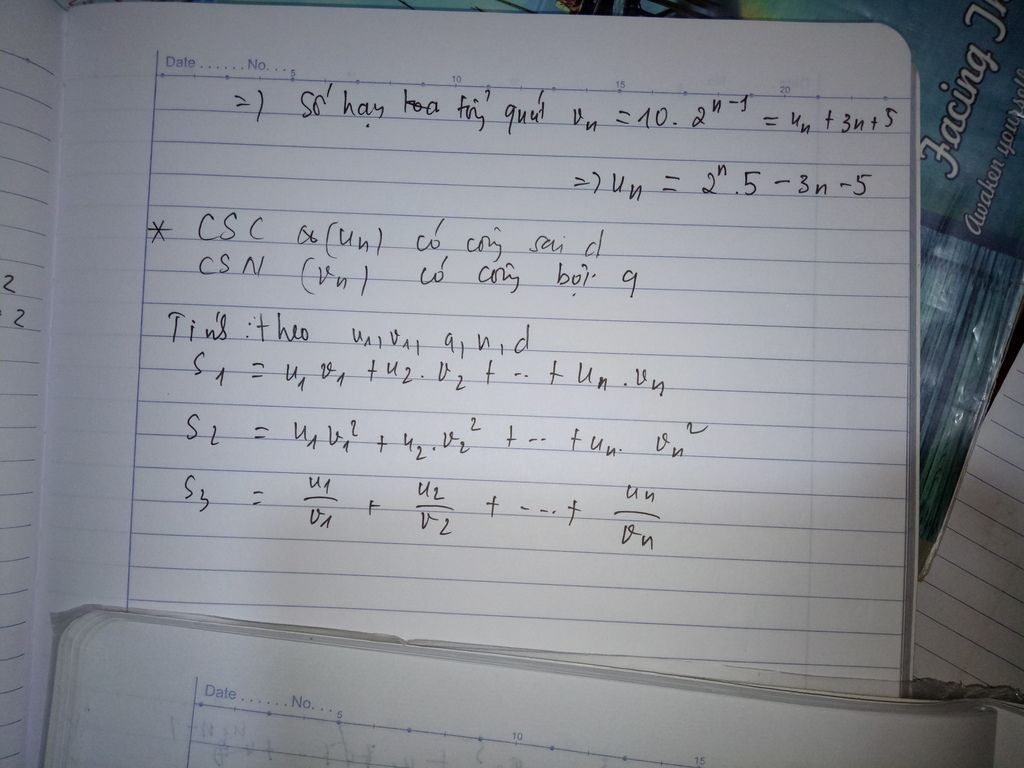 Date ...... No. ...
5 10 15 20
=) Số hạng tổng quát vₙ = 10. 2ⁿ⁻¹ = uₙ + 3n + 5
=) uₙ = 2ⁿ.5 - 3n - 5
* CSC (uₙ) có công sai d
CSN (vₙ) có công bội q
Tính : theo u₁, v₁, q, n, d
S₁ = u₁ v₁ + u₂. v₂ + ... + uₙ. vₙ
S₂ = u₁ v₁² + u₂. v₂² + ... + uₙ. vₙ²
S₃ = u₁/v₁ + u₂/v₂ + ... + uₙ/vₙ
Date ...... No. ...
5 10 15
2
2
Facing
Awaken yourself